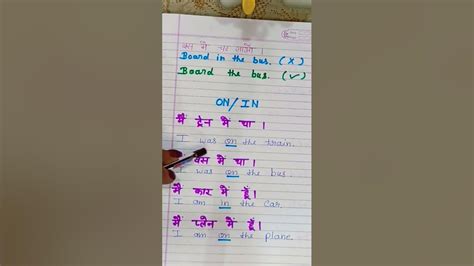 बस में चढ़ जाओ ।
Board in the bus. (×)
Board the bus. (✓)
ON/IN
मैं ट्रेन में था ।
I was on the train.
बस में था ।
I was on the bus.
मैं कार में हूँ ।
I am in the car.
मैं प्लेन में हूँ ।
I am on the plane.